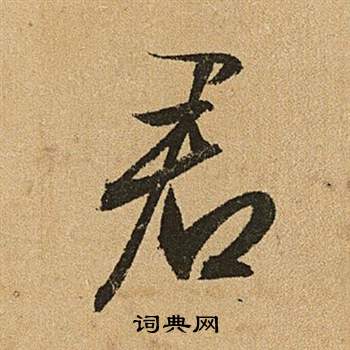 君
词典网